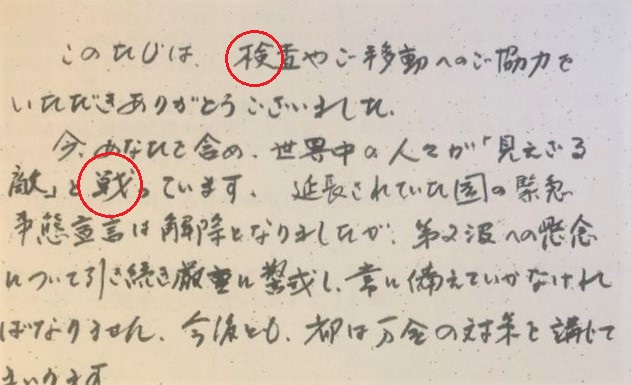 このたびは、検査やご移動へのご協力を
いただきありがとうございました。
今、あなたを含め、世界中の人々が「見えざる
敵」と戦っています。延長されていた国の緊急
事態宣言は解除となりましたが、第2波への懸念
について引き続き厳重に警戒し、常に備えていかなけれ
ばなりません。今後とも、都は万全の対策を講じて
まいります